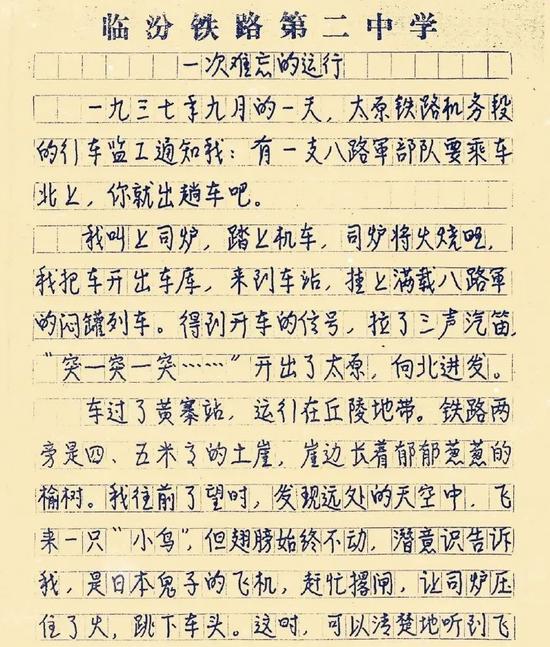 临汾铁路第二中学
一次难忘的运行
一九三七年九月的一天，太原铁路机务段
的行车监工通知我：有一支八路軍部队要乘车
北上，你就出趟车吧。
我叫上司炉，踏上机车，司炉将火烧旺，
我把车开出车库，来到车站，挂上满载八路軍
的闷罐列车。得到开车的信号，拉了三声汽笛，
“突—突—突……”开出了太原，向北进发。
车过了黄寨站，运行在丘陵地带。铁路两
旁是四、五米高的土崖，崖边长着郁郁葱葱的
榆树。我往前了望时，发现远处的天空中，飞
来一只“小鸟”，但翅膀始终不动，潜意识告诉
我，是日本鬼子的飞机，赶忙撂闸，让司炉压
住了火，跳下车头。这时，可以清楚地听到飞